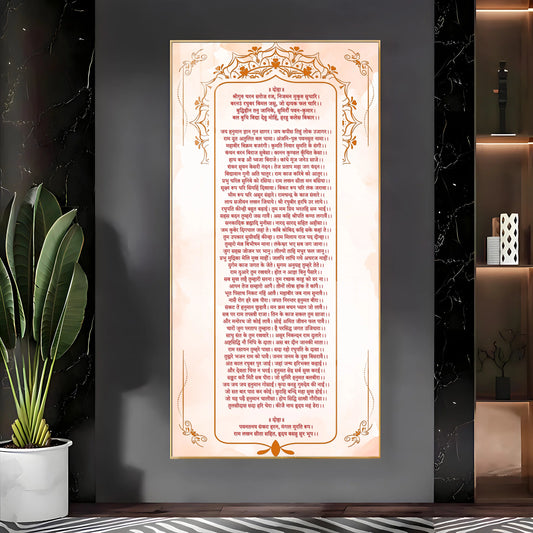 ॥ दोहा ॥
श्रीगुरु चरन सरोज रज, निजमन मुकुरु सुधारि।
बरनउं रघुबर बिमल जसु, जो दायक फल चारि।।
बुद्धिहीन तनु जानिके, सुमिरौं पवन-कुमार।
बल बुधि बिद्या देहु मोहिं, हरहु कलेस बिकार।।
जय हनुमान ज्ञान गुन सागर। जय कपीस तिहुं लोक उजागर।।
राम दूत अतुलित बल धामा। अंजनि-पुत्र पवनसुत नामा।।
महाबीर बिक्रम बजरंगी। कुमति निवार सुमति के संगी।।
कंचन बरन बिराज सुबेसा। कानन कुण्डल कुँचित केसा।।
हाथ बज्र औ ध्वजा बिराजे। कांधे मूंज जनेउ साजे।।
शंकर सुवन केसरी नंदन। तेज प्रताप महा जग वंदन।।
बिद्यावान गुनी अति चातुर। राम काज करिबे को आतुर।।
प्रभु चरित्र सुनिबे को रसिया। राम लखन सीता मन बसिया।।
सूक्ष्म रूप धरि सियहिं दिखावा। बिकट रूप धरि लंक जरावा।।
भीम रूप धरि असुर संहारे। रामचन्द्र के काज संवारे।।
लाय सजीवन लखन जियाये। श्री रघुबीर हरषि उर लाये।।
रघुपति कीन्ही बहुत बड़ाई। तुम मम प्रिय भरतहि सम भाई।।
सहस बदन तुम्हरो जस गावैं। अस कहि श्रीपति कण्ठ लगावैं।।
सनकादिक ब्रह्मादि मुनीसा। नारद सारद सहित अहीसा।।
जम कुबेर दिगपाल जहां ते। कबि कोबिद कहि सके कहां ते।।
तुम उपकार सुग्रीवहिं कीन्हा। राम मिलाय राज पद दीन्हा।।
तुम्हरो मंत्र बिभीषन माना। लंकेश्वर भए सब जग जाना।।
जुग सहस्र जोजन पर भानु। लील्यो ताहि मधुर फल जानू।।
प्रभु मुद्रिका मेलि मुख माहीं। जलधि लांघि गये अचरज नाहीं।।
दुर्गम काज जगत के जेते। सुगम अनुग्रह तुम्हरे तेते।।
राम दुआरे तुम रखवारे। होत न आज्ञा बिनु पैसारे।।
सब सुख लहै तुम्हारी सरना। तुम रच्छक काहू को डर ना।।
आपन तेज सम्हारो आपै। तीनों लोक हांक तें कांपै।।
भूत पिसाच निकट नहिं आवै। महाबीर जब नाम सुनावै।।
नासै रोग हरे सब पीरा। जपत निरन्तर हनुमत बीरा।।
संकट तें हनुमान छुड़ावै। मन क्रम बचन ध्यान जो लावै।।
सब पर राम तपस्वी राजा। तिन के काज सकल तुम साजा।
और मनोरथ जो कोई लावै। सोई अमित जीवन फल पावै।।
चारों जुग परताप तुम्हारा। है परसिद्ध जगत उजियारा।।
साधु संत के तुम रखवारे। असुर निकन्दन राम दुलारे।।
अष्टसिद्धि नौ निधि के दाता। अस बर दीन जानकी माता।।
राम रसायन तुम्हरे पासा। सदा रहो रघुपति के दासा।।
तुह्मरे भजन राम को पावै। जनम जनम के दुख बिसरावै।।
अंत काल रघुबर पुर जाई। जहां जन्म हरिभक्त कहाई।।
और देवता चित्त न धरई। हनुमत सेइ सर्ब सुख करई।।
सङ्कट कटै मिटै सब पीरा। जो सुमिरै हनुमत बलबीरा।।
जय जय जय हनुमान गोसाईं। कृपा करहु गुरुदेव की नाईं।।
जो सत बार पाठ कर कोई। छूटहि बन्दि महा सुख होई।।
जो यह पढ़ै हनुमान चालीसा। होय सिद्धि साखी गौरीसा।।
तुलसीदास सदा हरि चेरा। कीजै नाथ हृदय महं डेरा।।
॥ दोहा ॥
पवनतनय संकट हरन, मंगल मूरति रूप।
राम लखन सीता सहित, हृदय बसहु सुर भूप।।